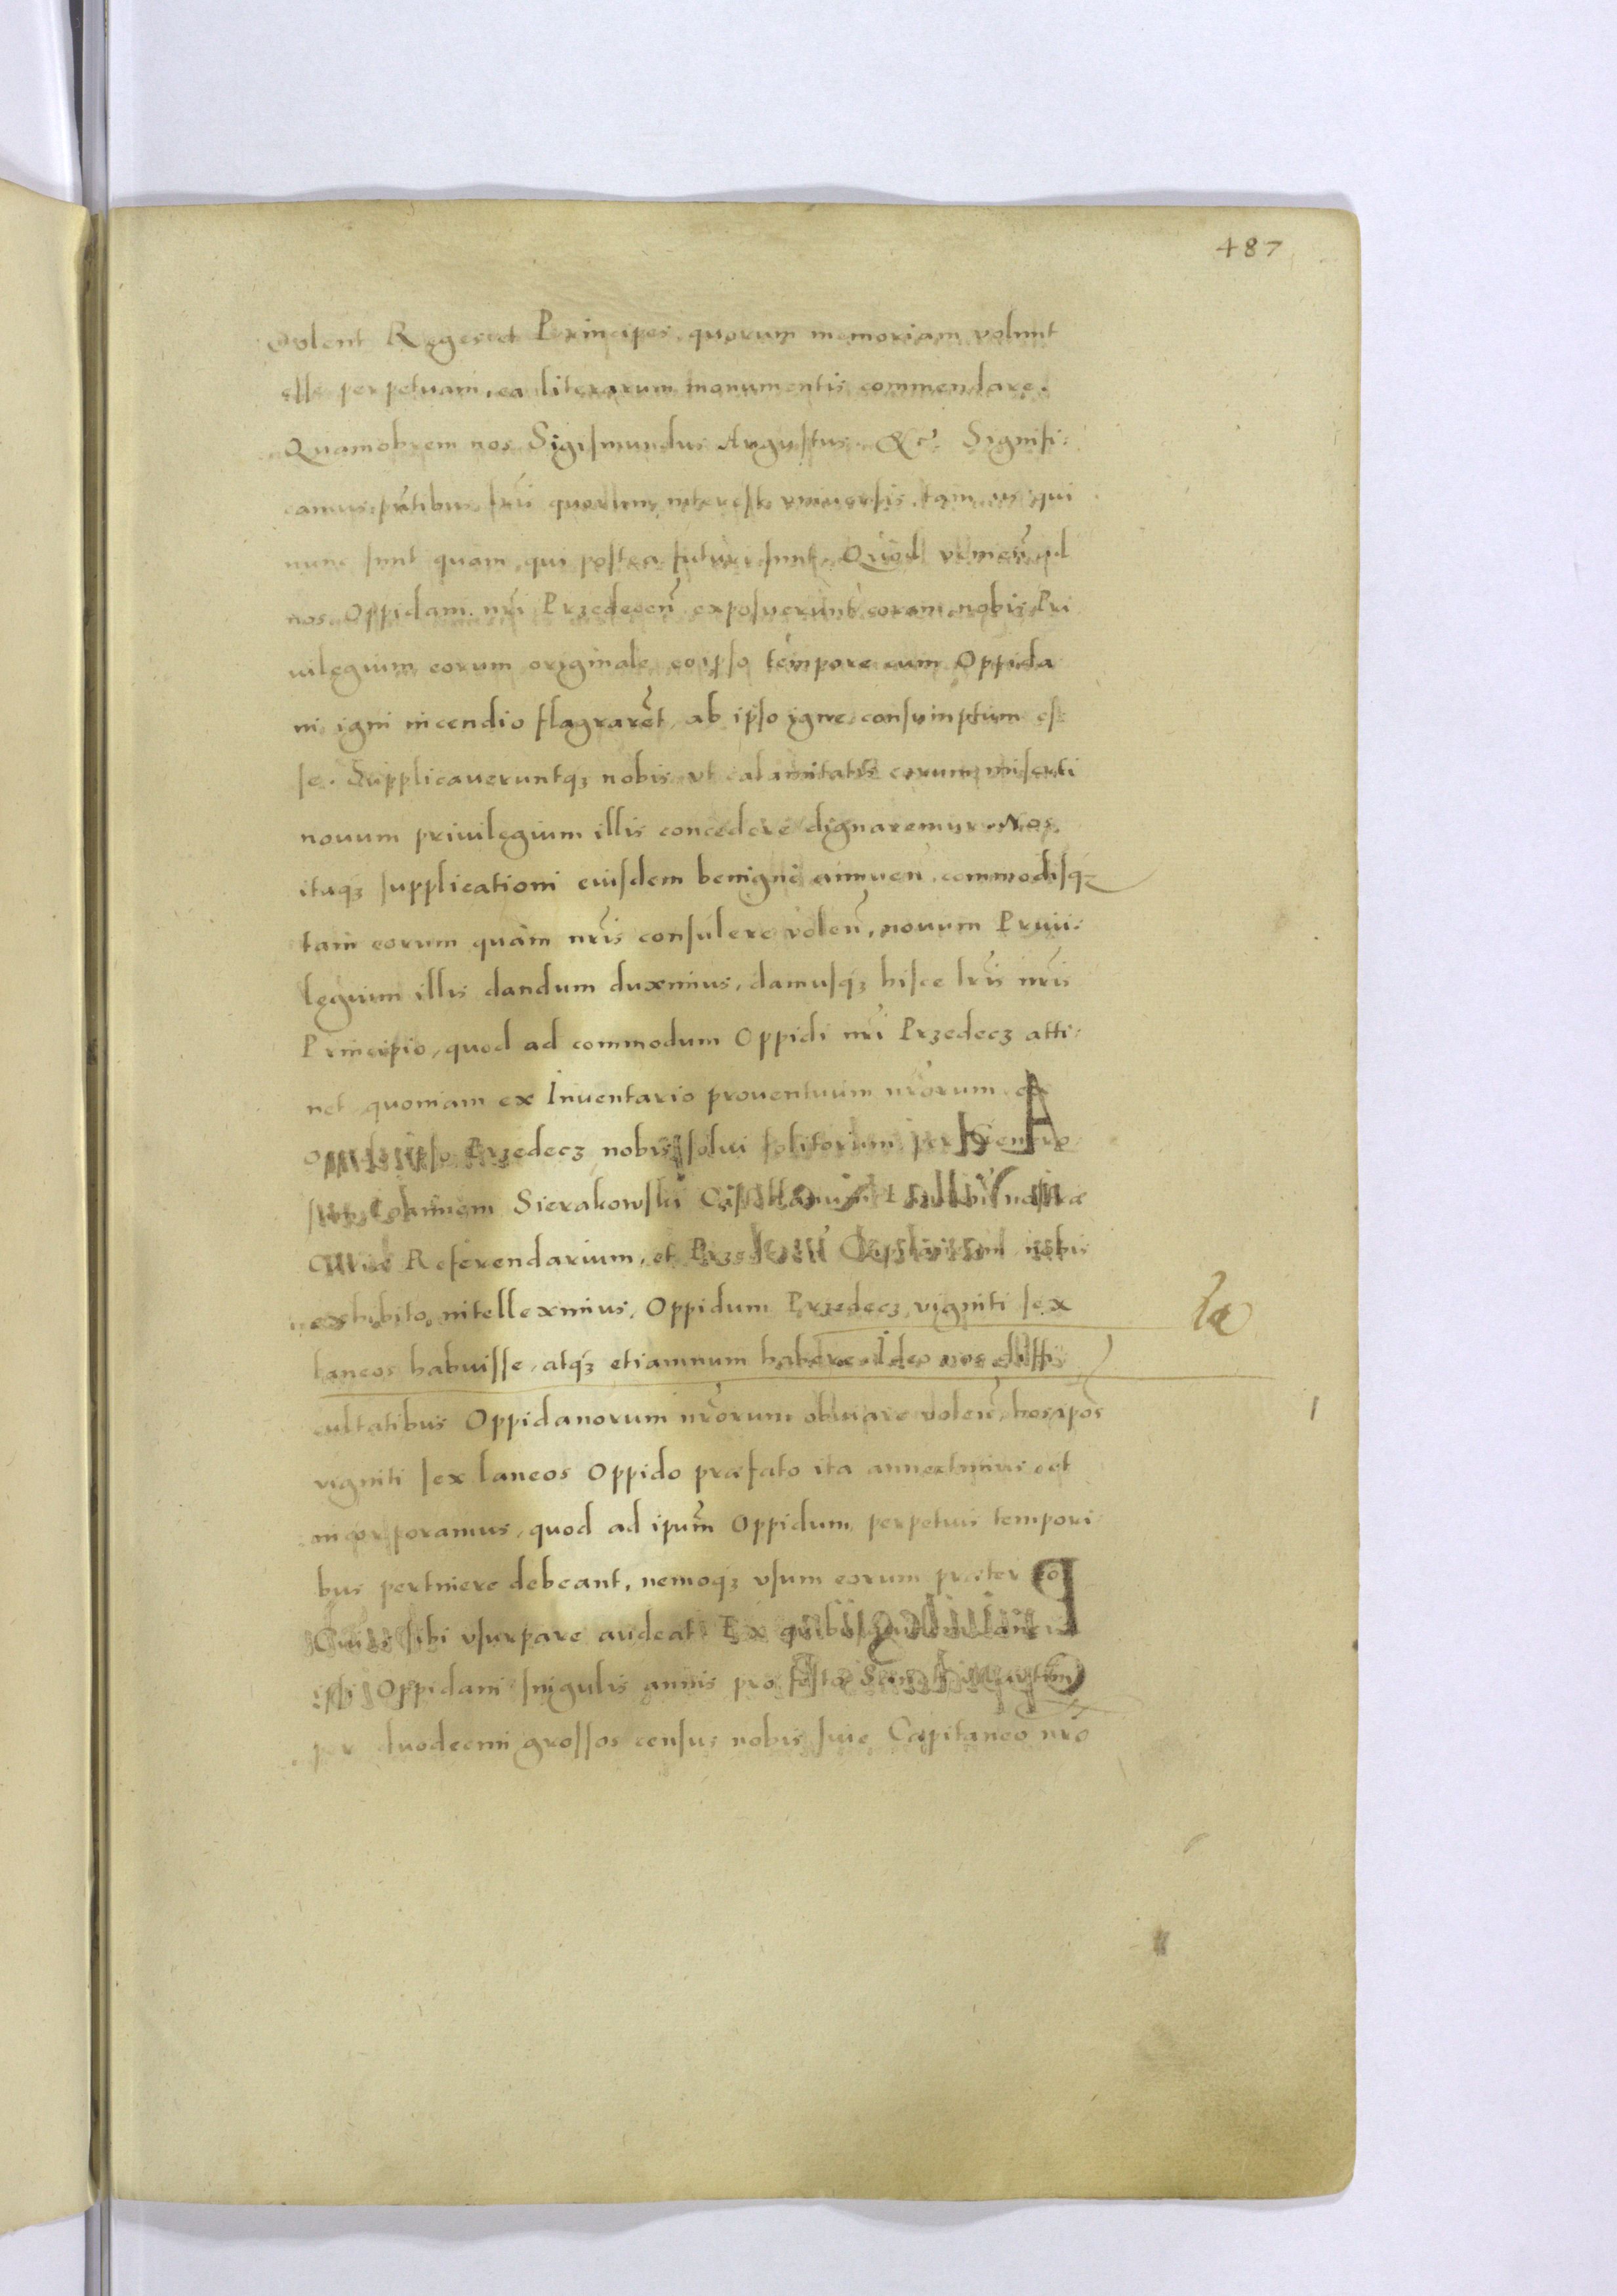 487
volent Reges et Principes, quorum memoriam volunt
esse perpetuam, ea literarum monumentis commendare.
Quamobrem nos Sigismundus Augustus. &c. Signifi:
camus pñtibus lr̃is quorum interest vniuersis, tam iis qui
nunc sunt quàm qui postea futuri sunt. Quòd venieñ ad
nos Oppidani nr̃i Przedeceñ exposuerunt coram nobis Pri
uilegium eorum originale eo ipso tempore cum Oppida
ni igni incendio flagrarẽt, ab ipso igne consumptum es:
se. Supplicaueruntqꝫ nobis vt calamitatis eorum miserti
nouum priuilegium illis concedere dignaremur. Nos
itaqꝫ supplicationi eiusdem benignè annueñ, commodisqꝫ
tam eorum quàm nr̃is consulere voleñ, nouum Priui:
legium illis dandum duximus, damusqꝫ hisce lr̃is nr̃is
Principio, quod ad commodum Oppidi nr̃i Przedecz atti:
net, quoniam ex Inuentario prouentuum nr̃orum, ex
ipso Przedecz nobis solui solitorum, per Genero
sum Ioannem Sierakowski nostræ
Curiæ Referendarium, et nobis
exhibito, intelleximus, Oppidum Przedecz viginti sex
laneos habuisse, atqꝫ etiamnum habere. Ideo nos diffi
cultatibus Oppidanorum nr̃orum obuiare voleñ, hos ip̃os
viginti sex laneos Oppido præfato ita annectimus et
incorporamus, quod ad ipsũm Oppidum perpetuis tempori
bus pertinere debeant, nemoqꝫ vsum eorum præter
Ciues sibi vsurpare audeat. Ex quibus
ipsi Oppidani singulis annis pro festo Sancti Martini
per duodecim grossos census nobis siue Capitaneo nr̃o